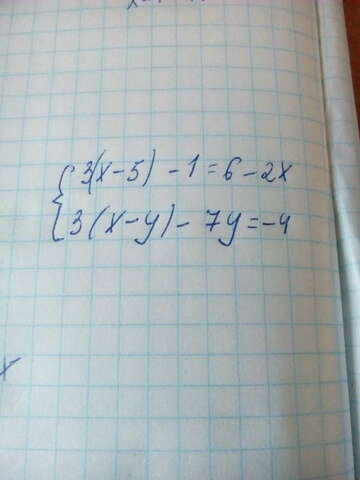 3(x-5) - 1 = 6 - 2x
3(x-y) - 7y = -4